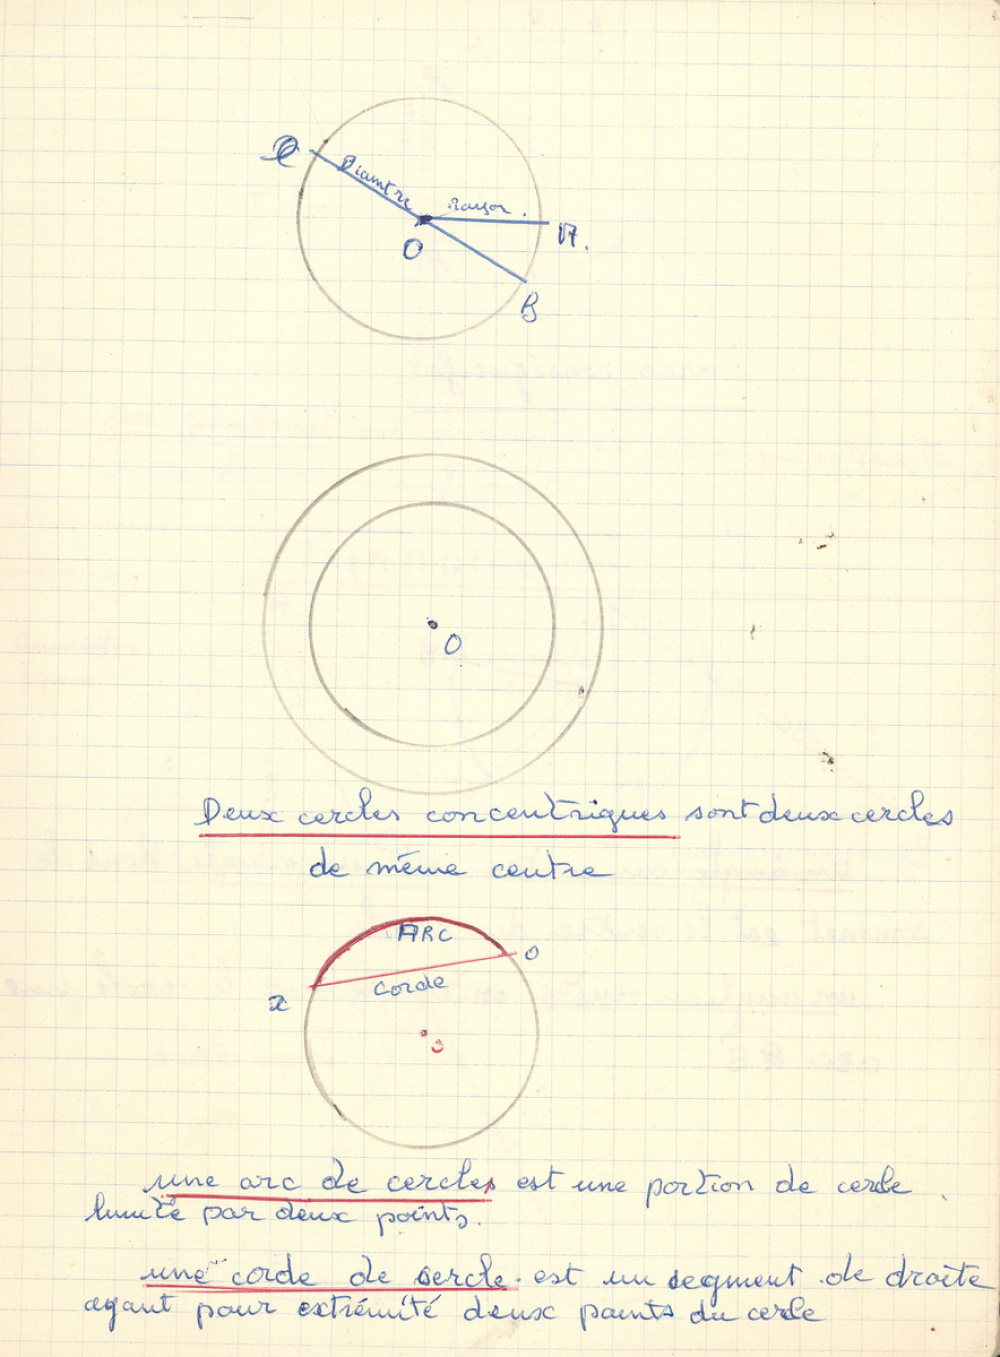 Diamtre
rayon.
A.
O
B
O
Deux cercles concentriques sont deux cercles
de même centre
ARC
O
corde
x
une arc de cercles est une portion de cercle.
limité par deux points.
une corde de cercle est un segment de droite
ayant pour extrémité deux points du cercle